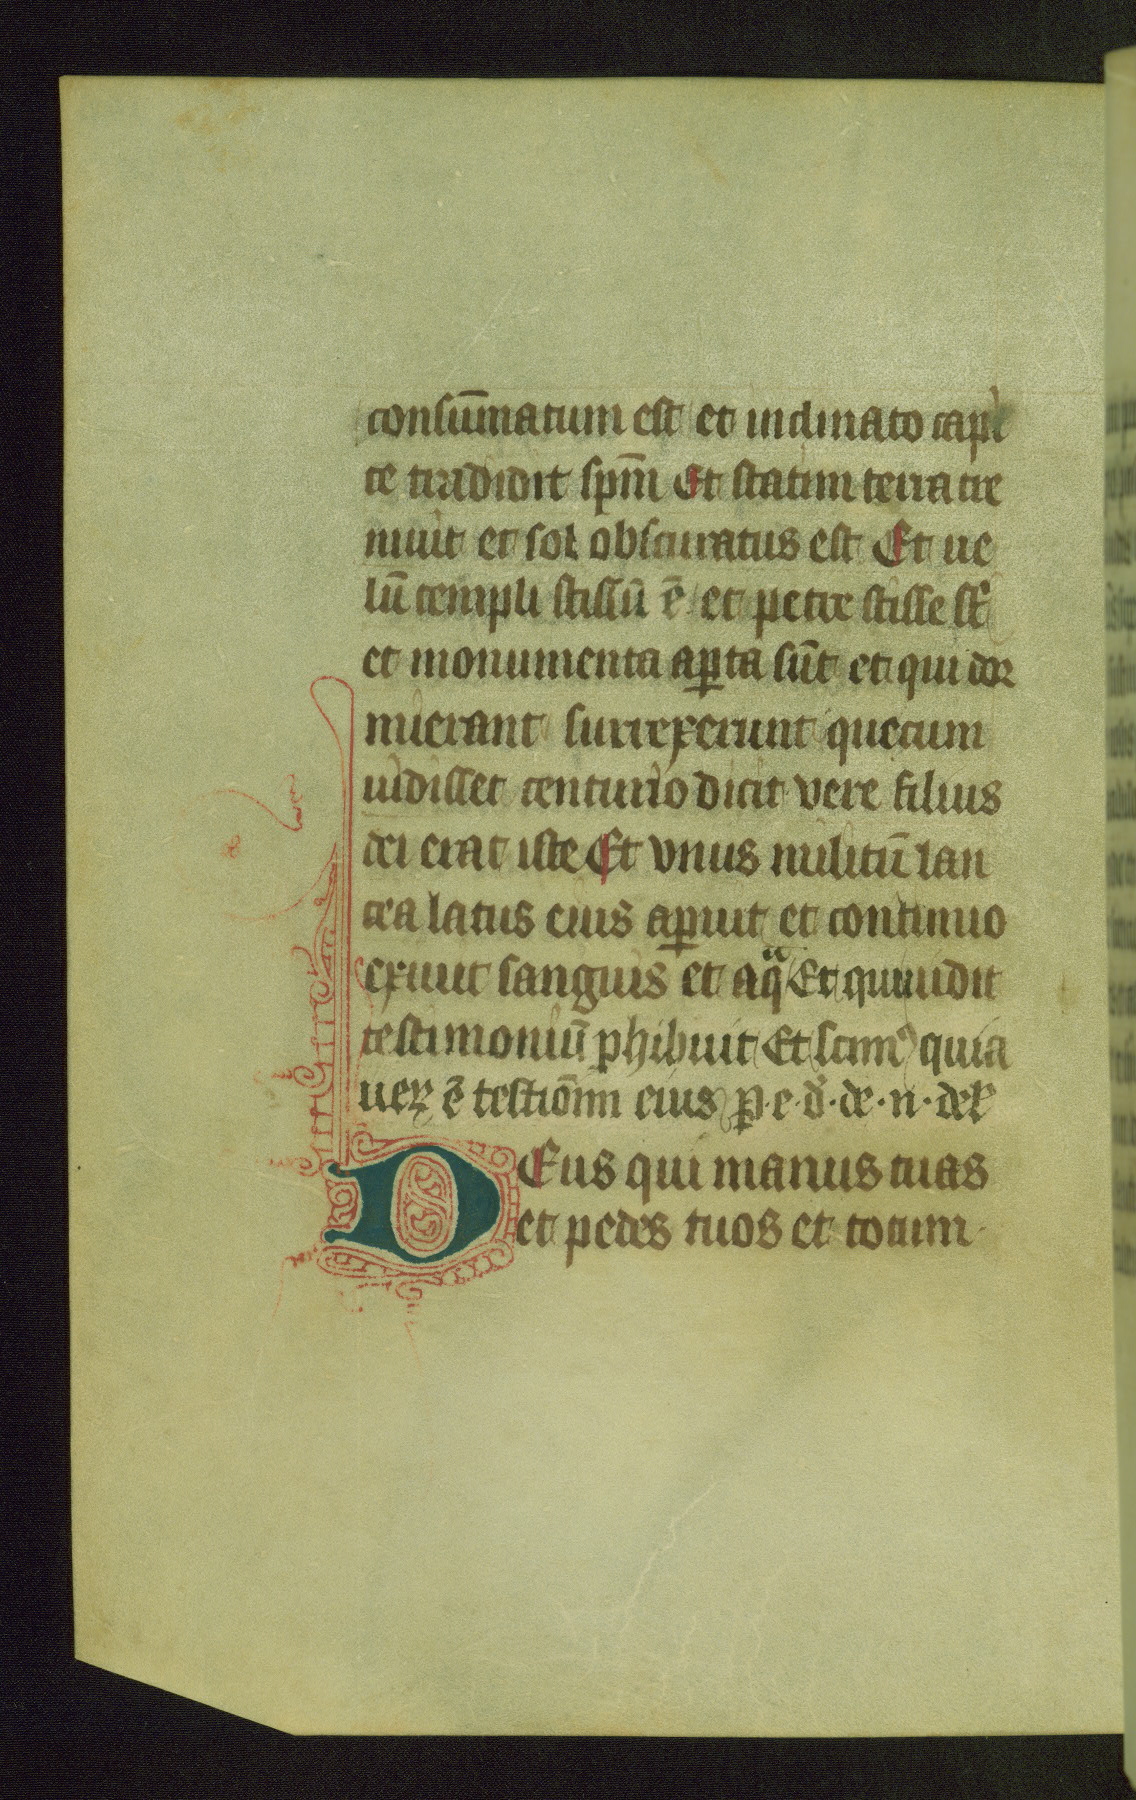 consūmatum est et inclinato capi
te tradidit spm̄ Et statim terra tre
muit et sol obscuratus est Et ue
lū templi scissū ē et petre scisse st̄
et monumenta aꝑta sūt et qui dor
mierant surrexerunt que cum
uidisset centurio dicit vere filius
dei erat iste Et vnus militū lan
cea latus eius aꝑuit et continuo
exiuit sanguis et aqᵃ Et qui uidit
testimoniū phibuit Et scimꝰ quia
ueꝝ ē testiōm eius p·e·d·de·n·del
DEus qui manus tuas
et pedes tuos et totum